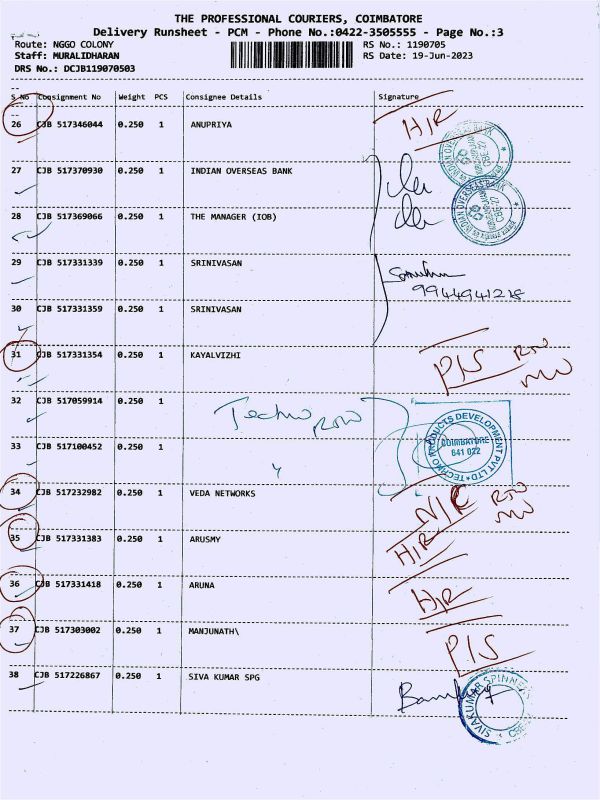 THE PROFESSIONAL COURIERS, COIMBATORE
Delivery Runsheet - PCM - Phone No.:0422-3505555 - Page No.:3
Route: NGGO COLONY RS No.: 1190705
Staff: MURALIDHARAN RS Date: 19-Jun-2023
DRS No.: DCJB119070503
S No Consignment No Weight PCS Consignee Details Signature
26 CJB 517346044 0.250 1 ANUPRIYA H/R
27 CJB 517370930 0.250 1 INDIAN OVERSEAS BANK
28 CJB 517369066 0.250 1 THE MANAGER (IOB)
29 CJB 517331339 0.250 1 SRINIVASAN
9944941218
30 CJB 517331359 0.250 1 SRINIVASAN
31 CJB 517331354 0.250 1 KAYALVIZHI P/S
32 CJB 517059914 0.250 1 Techno
TECHNO PRODUCTS DEVELOPMENT PVT LTD
COIMBATORE
641 022
33 CJB 517100452 0.250 1
34 CJB 517232982 0.250 1 VEDA NETWORKS N/C
35 CJB 517331383 0.250 1 ARUSMY H/R
36 CJB 517331418 0.250 1 ARUNA H/R
37 CJB 517303002 0.250 1 MANJUNATH\ P/S
38 CJB 517226867 0.250 1 SIVA KUMAR SPG